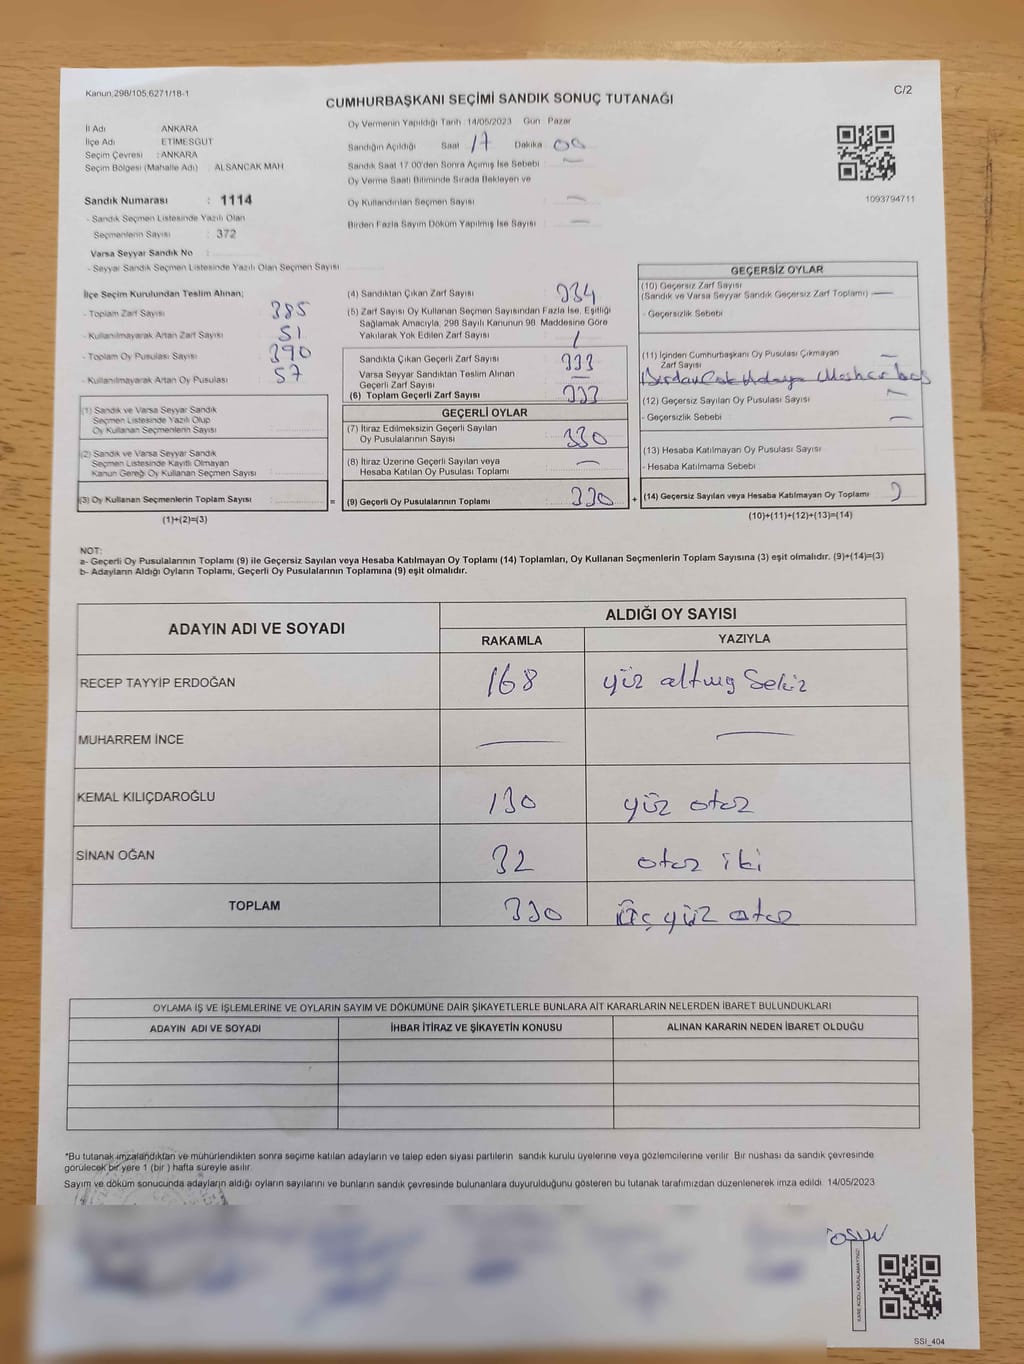 Kanun,298/105,6271/18-1
C/2
CUMHURBAŞKANI SEÇİMİ SANDIK SONUÇ TUTANAĞI
İl Adı ANKARA
İlçe Adı ETİMESGUT
Seçim Çevresi : ANKARA
Seçim Bölgesi (Mahalle Adı) ALSANCAK MAH
Sandık Numarası : 1114
- Sandık Seçmen Listesinde Yazılı Olan
Seçmenlerin Sayısı : 372
Varsa Seyyar Sandık No :
- Seyyar Sandık Seçmen Listesinde Yazılı Olan Seçmen Sayısı
Oy Vermenin Yapıldığı Tarih : 14/05/2023 Gün : Pazar
Sandığın Açıldığı Saat 17 Dakika 00
Sandık Saat 17.00'den Sonra Açımış İse Sebebi : —
Oy Verme Saati Bitiminde Sırada Bekleyen ve
Oy Kullandırılan Seçmen Sayısı —
Birden Fazla Sayım Döküm Yapılmış İse Sayısı —
1093794711
İlçe Seçim Kurulundan Teslim Alınan;
- Toplam Zarf Sayısı 385
- Kullanılmayarak Artan Zarf Sayısı 51
- Toplam Oy Pusulası Sayısı 390
- Kullanılmayarak Artan Oy Pusulası 57
(1) Sandık ve Varsa Seyyar Sandık
Seçmen Listesinde Yazılı Olup
Oy Kullanan Seçmenlerin Sayısı
(2) Sandık ve Varsa Seyyar Sandık
Seçmen Listesinde Kayıtlı Olmayan
Kanun Gereği Oy Kullanan Seçmen Sayısı
(3) Oy Kullanan Seçmenlerin Toplam Sayısı
(1)+(2)=(3)
=
(4) Sandıktan Çıkan Zarf Sayısı 334
(5) Zarf Sayısı Oy Kullanan Seçmen Sayısından Fazla İse, Eşitliği
Sağlamak Amacıyla, 298 Sayılı Kanunun 98. Maddesine Göre
Yakılarak Yok Edilen Zarf Sayısı 1
Sandıkta Çıkan Geçerli Zarf Sayısı 333
Varsa Seyyar Sandıktan Teslim Alınan
Geçerli Zarf Sayısı —
(6) Toplam Geçerli Zarf Sayısı 333
GEÇERLİ OYLAR
(7) İtiraz Edilmeksizin Geçerli Sayılan
Oy Pusulalarının Sayısı 330
(8) İtiraz Üzerine Geçerli Sayılan veya
Hesaba Katılan Oy Pusulası Toplamı —
(9) Geçerli Oy Pusulalarının Toplamı 330
+
GEÇERSİZ OYLAR
(10) Geçersiz Zarf Sayısı
(Sandık ve Varsa Seyyar Sandık Geçersiz Zarf Toplamı) —
- Geçersizlik Sebebi
(11) İçinden Cumhurbaşkanı Oy Pusulası Çıkmayan
Zarf Sayısı —
(12) Geçersiz Sayılan Oy Pusulası Sayısı —
- Geçersizlik Sebebi —
(13) Hesaba Katılmayan Oy Pusulası Sayısı
- Hesaba Katılmama Sebebi
(14) Geçersiz Sayılan veya Hesaba Katılmayan Oy Toplamı
(10)+(11)+(12)+(13)=(14)
NOT:
a- Geçerli Oy Pusulalarının Toplamı (9) ile Geçersiz Sayılan veya Hesaba Katılmayan Oy Toplamı (14) Toplamları, Oy Kullanan Seçmenlerin Toplam Sayısına (3) eşit olmalıdır. (9)+(14)=(3)
b- Adayların Aldığı Oyların Toplamı, Geçerli Oy Pusulalarının Toplamına (9) eşit olmalıdır.
ADAYIN ADI VE SOYADI ALDIĞI OY SAYISI
RAKAMLA YAZIYLA
RECEP TAYYİP ERDOĞAN 168 yüz altmış sekiz
MUHARREM İNCE — —
KEMAL KILIÇDAROĞLU 130 yüz otuz
SİNAN OĞAN 32 otuz iki
TOPLAM 330 üç yüz otuz
OYLAMA İŞ VE İŞLEMLERİNE VE OYLARIN SAYIM VE DÖKÜMÜNE DAİR ŞİKAYETLERLE BUNLARA AİT KARARLARIN NELERDEN İBARET BULUNDUKLARI
ADAYIN ADI VE SOYADI İHBAR İTİRAZ VE ŞİKAYETİN KONUSU ALINAN KARARIN NEDEN İBARET OLDUĞU
*Bu tutanak imzalandıktan ve mühürlendikten sonra seçime katılan adayların ve talep eden siyasi partilerin sandık kurulu üyelerine veya gözlemcilerine verilir. Bir nüshası da sandık çevresinde
görülecek bir yere 1 (bir ) hafta süreyle asılır.
Sayım ve döküm sonucunda adayların aldığı oyların sayılarını ve bunların sandık çevresinde bulunanlara duyurulduğunu gösteren bu tutanak tarafımızdan düzenlenerek imza edildi. 14/05/2023
KARE KODU KARALAMAYINIZ!
SSI_404